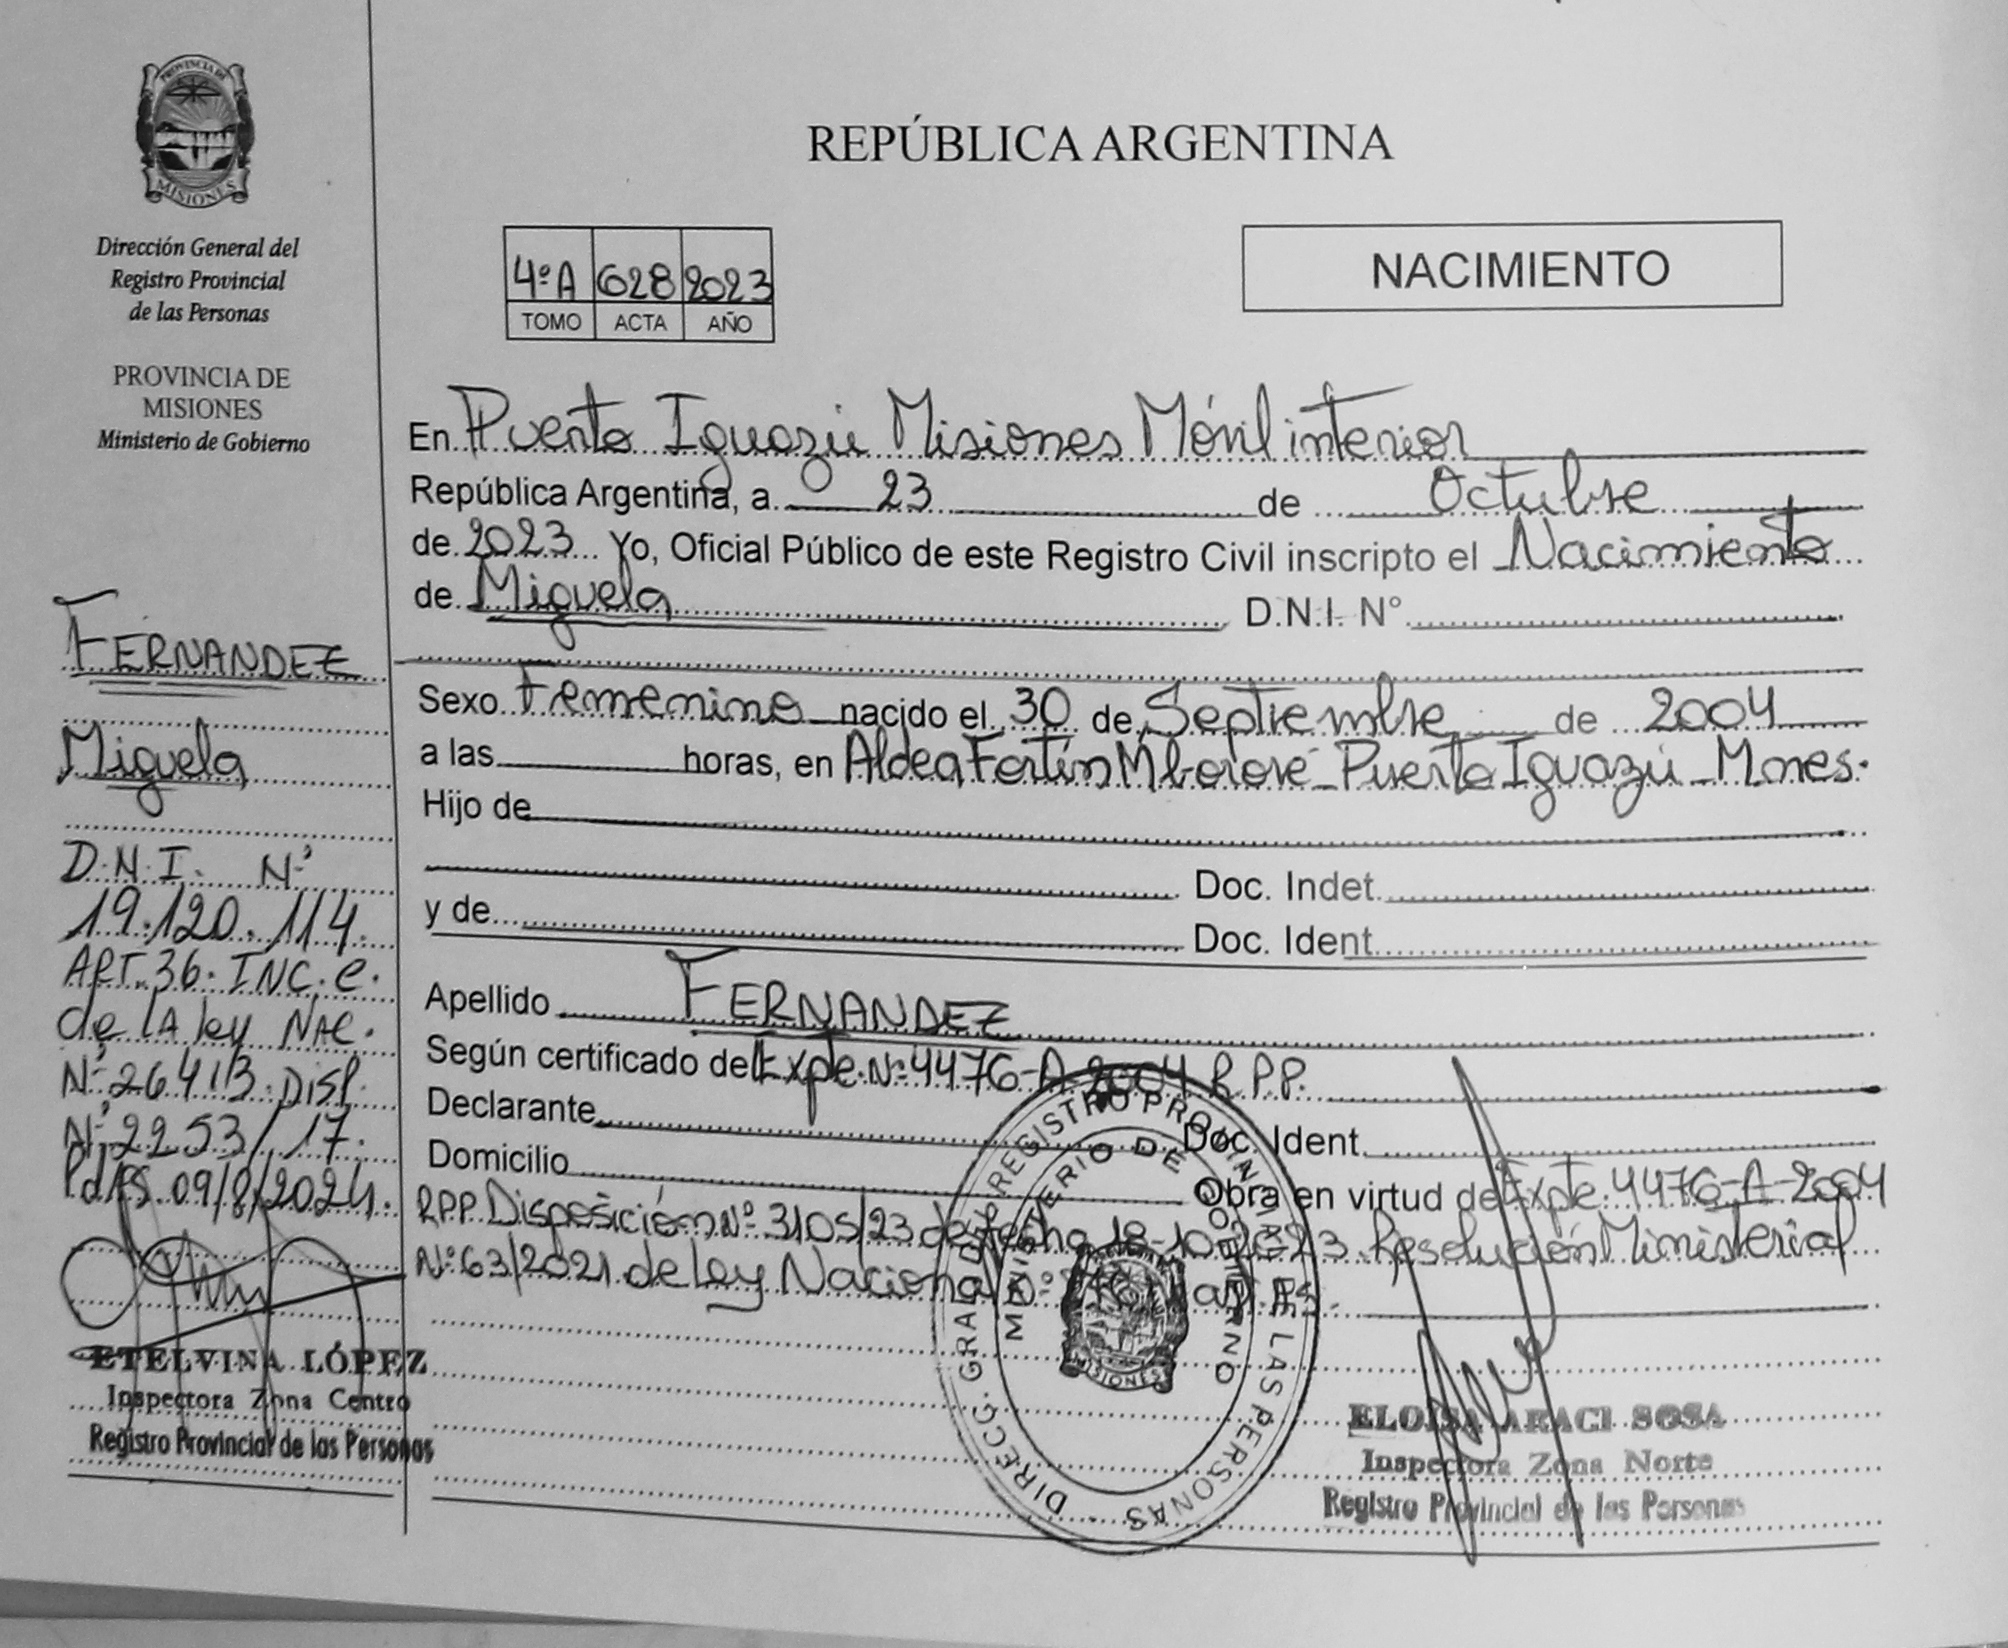 PROVINCIA DE
MISIONES
Dirección General del
Registro Provincial
de las Personas
PROVINCIA DE
MISIONES
Ministerio de Gobierno
FERNANDEZ
Miguela
D.N.I. Nº
19.120.114.
ART. 36. INC. C.
de la ley NAC.
Nº 26.413. DISP.
Nº 2253/17.
Pdas 09/8/2024.
ETELVINA LÓPEZ
Inspectora Zona Centro
Registro Provincial de las Personas
REPÚBLICA ARGENTINA
4º A 628 2023
TOMO ACTA AÑO
NACIMIENTO
En Puerto Iguazú Misiones Móvil interior
República Argentina, a 23 de Octubre
de 2023 Yo, Oficial Público de este Registro Civil inscripto el Nacimiento
de Miguela D.N.I. N°
Sexo Femenino nacido el 30 de Septiembre de 2004
a las horas, en Aldea Fortín Mbororé - Puerto Iguazú - Mnes.
Hijo de
Doc. Indet.
y de
Doc. Ident.
Apellido FERNANDEZ
Según certificado de Expte. Nº 4476-A-2004 R.P.P.
Declarante Doc. Ident.
Domicilio
Obra en virtud de Expte. 4476-A-2004
RPP. Disposición Nº 3105/23 de fecha 18-10-2023. Resolución Ministerial
Nº 63/2021 de Ley Nacional Nº
DIRECC. GRAL. DEL REGISTRO PROVINCIAL DE LAS PERSONAS
MINISTERIO DE GOBIERNO
MISIONES
ELOISA ARACI SOSA
Inspectora Zona Norte
Registro Provincial de las Personas